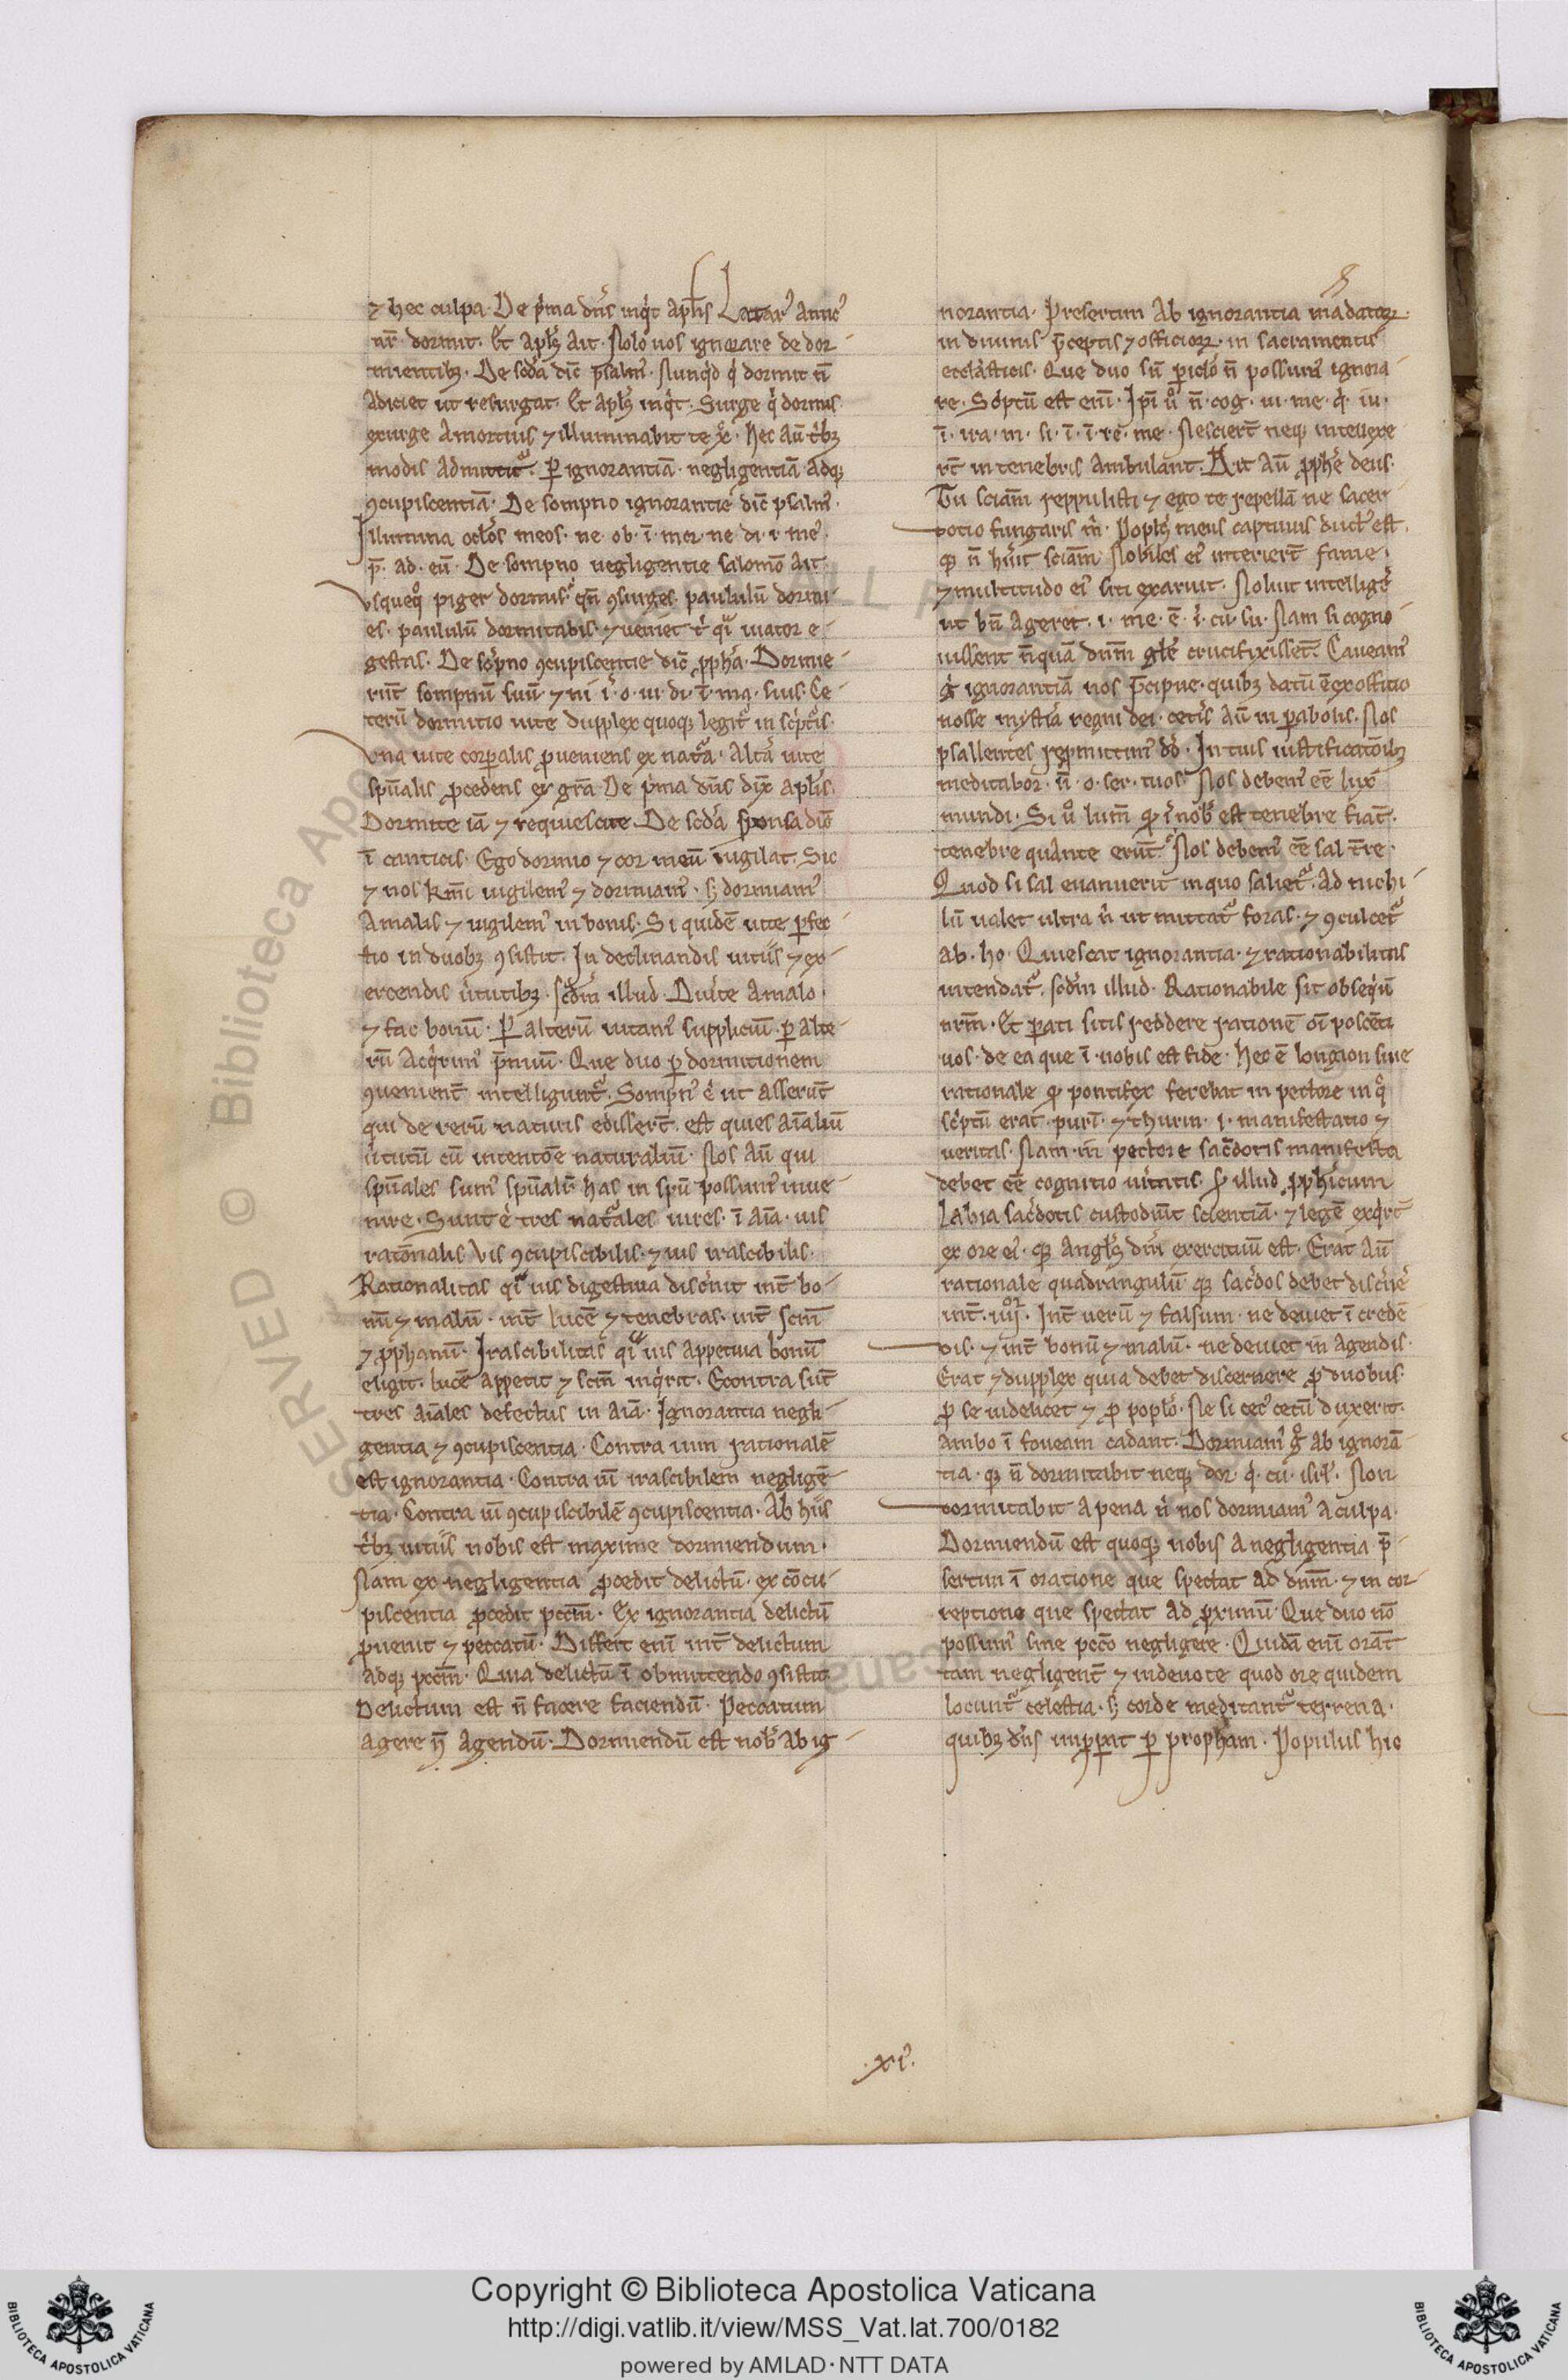 ⁊ hec culpa. De p͛ma dn̄s inq͛t apl̄is Lazar᷒ amic᷒
nr̄. dormit. Et apl̄s ait. Nolo uos ignorare de dor-
mientibꝫ. De scd̄a dic̄ psalm᷒. Nunqͥd qͥ dormit n̄
adiciet ut resurgat. Et apl̄s inqͥt. Surge qͥ dormis
exurge a mortuis ⁊ illuminabit te xp̄c. hec au̅ tͥbꝫ
modis admittit᷑. ꝑ ignorantiā. negligentiā adqꝫ
ꝯcupiscentiā. De sompno ignorantie dic̄ psalm᷒.
Illumina oclos meos. ne. ob. ī. mor. ne. di. i. me᷒.
p̄. ad. eū. De sompno negligentie salomō ait.
Vsqueqͦ piger dormis. qn̄ ꝯsurges. paululū dormi-
es. paululū dormitabis. ⁊ ueniet tͥ qͣi uiator e-
gestas. De sōpno ꝯcupiscentie dic̄ ꝓph̄a. Dormie-
rūt sompnū suū. ⁊ ni͡. i͛. o. ui. di. ī. ma. suis. Ce-
terū dormitio uite dupplex quoqꝫ legit᷑ in scͥptͥs.
Vna uite corꝑalis ꝓueniens ex natᷓa. Altᷓa uite
spūalis ꝓcedens ex grā. De pͥma dn̄s dix̄ apl̄is.
Dormite iā ⁊ requiescite. De scd̄a sponsa dic̄
ī canticis. Ego dormio ⁊ cor meū uigilat. Sic
⁊ nos km̄i uigilem᷒ ⁊ dormiam᷒. sꝫ dormiam᷒
a malis ⁊ uigilem᷒ in bonis. Si quidē uite ꝑfec-
tio in duobꝫ ꝯsistit. In declinandis uitiis ⁊ ex-
ercendis u͛tutibꝫ. scd̄m illud. Diu͛te a malo.
⁊ fac bonū. Ꝑ alterū uitam᷒ suppliciū. ꝑ alte-
rū acqͥrim᷒ p̄miū. Que duo ꝑ dormitionem
ꝯuenient̄ intelligunt᷑. Sompn᷒ e͛ ut asserūt
qui de rerū naturis edissert̄. est quies aīaliū
u͛tutū cū intentōe naturaliū. Nos aū qui
spūales sum᷒ spūalit̄ has in spū possum᷒ inue-
nire. Sunt e͛ tres natᷓales uires. ī aīa. uis
ratōnalis. Vis ꝯcupiscibilis. ⁊ uis irascibilis.
Rationalitas qͣi uis digestiua disc͛nit int̄ bo-
nū ⁊ malū. int̄ lucē ⁊ tenebras. int̄ scm̄
⁊ ꝓphanū. Irascibilitas qͣi uis appetiua bonū
eligit. lucē appetit ⁊ scm̄ inqͥrit. Econtra sūt
tres aīales defectus in aīa. Ignorantia negli-
gentia ⁊ ꝯcupiscentia. Contra uim rationalē
est ignorantia. Contra uī irascibilem negligē-
tia. Contra uī ꝯcupiscibilē ꝯcupiscentia. Ab hiis
tͥbꝫ uitiis nobis est maxime dormiendum.
Nam ex negligentia ꝓcedit delictū. ex cōcu-
piscentia ꝓcedit pccm̄. Ex ignorantia delictū
ꝓuenit ⁊ peccatū. Differt enī int̄ delictum
adqꝫ pccm̄. Quia delictū ī obmittendo ꝯsistit.
Delictum est n̄ facere faciendū. Peccatum
agere n̄ agendū. Dormiendū est nob̄ ab ig-
norantia. Presertim ab ignorantia mādatoꝝ.
in diuinis p̄ceptis ⁊ officioꝝ. in sacramentis
ecclāsticis. Que duo sn̄ ꝑiclo n̄ possum᷒ ignora-
re. Scͥptū est enī. Ip̄i uͦ n̄. cog. ui. me. qͥ. iu.
ī. ira. m. si. ī. ī. re. me. Nesciert̄ neqꝫ intellexe-
rt̄ in tenebris ambulant. Ait aū ꝓph̄e deus.
Tu sciām reppulisti ⁊ ego te repellā ne sacer-
dotio fungaris m̄. Popl̄s meus captiuus duct᷒ est.
qꝫ n̄ hͣuit sciām. Nobiles ei᷒ interiert̄ fame.
⁊ multitudo ei᷒ siti exaruit. Noluit intellig͛e
ut bn̄ ageret. i. me. ē. i͛. cu. su. Nam si cogno-
uissent nū̄quā dnm̄ gl̄e crucifixissēt. Caueam᷒
gͥ ignorantiā nos p̄cipue. quibꝫ datū ē ex officio
nosse mystīa regni dei. cet͛is aū in ꝑabolis. Nos
psallentes ꝓmittim᷒ dō. In tuis iustificatōibꝫ
meditabor. n̄. o. ser. tuos. Nos debem᷒ eē lux
mundi. Si uͦ lum̄ qͦ i͛ nob̄ est tenebre fiāt.
tenebre quante erūt. Nos debem᷒ eē sal t̄re.
Quod si sal euanuerit in quo saliet᷑. Ad nichi-
lū ualet ultra nͥ ut mittat᷑ foras. ⁊ ꝯculcet᷑
ab. ho. Quiescat ignorantia. ⁊ rationabilitas
intendat᷑. scd̄m illud. Rationabile sit obseqͥū
nrm̄. Et ꝑati sitis reddere rationē oī poscēti
uos. de ea que ī. nobis est fide. Hec ē longion siue
rationale qͦ pontifex ferebat in pectore in qͦ
scͥptū erat. purī. ⁊ thurin. i. manifestatio ⁊
ueritas. Nam. in pectore sac͛dotis manifesta
debet eē cognitio u͛itatis. ꝑ illud ꝓph̄icum
Labia sac͛dotis custodiūt scientiā. ⁊ legē exqͥrt̄
ex ore ei᷒. qꝫ angl̄s dn̄i exercituū est. Erat aū
rationale quadrangulū. qꝫ sac͛dos debet disc͛n͛e
int̄. iiiiͦʳ. Int̄ uerū ⁊ falsum. ne deuiet ī credē-
dis. ⁊ int̄ bonū ⁊ malū. ne deuiet in agendis.
Erat ⁊ dupplex quia debet discernere ꝓ duobus.
ꝓ se uidelicet ⁊ ꝓ poplo. Ne si cec᷒ cecū duxerit.
ambo ī foueam cadant. Dormiam᷒ gͦ ab ignorā-
tia. qꝫ n̄ dormitabit neqꝫ dor. qͥ. cu. isrl̄. Non
dormitabit a pena nͥ nos dormiam᷒ a culpa.
Dormiendū est quoqꝫ nobis a negligentia. p̄-
sertim ī oratione que spectat ad dnm̄. ⁊ in cor-
reptione que spectat ad ꝓximū. Que duo nō
possum᷒ sine pccō negligere. Quidā enī orāt
tam negligent̄ ⁊ indeuote quod ore quidem
locunt᷑ celestia. sꝫ corde meditant᷑ terrena.
quibꝫ dn̄s impꝑat ꝑ propham. Populus hic
.xi.
Copyright © Biblioteca Apostolica Vaticana
http://digi.vatlib.it/view/MSS_Vat.lat.700/0182
powered by AMLAD · NTT DATA